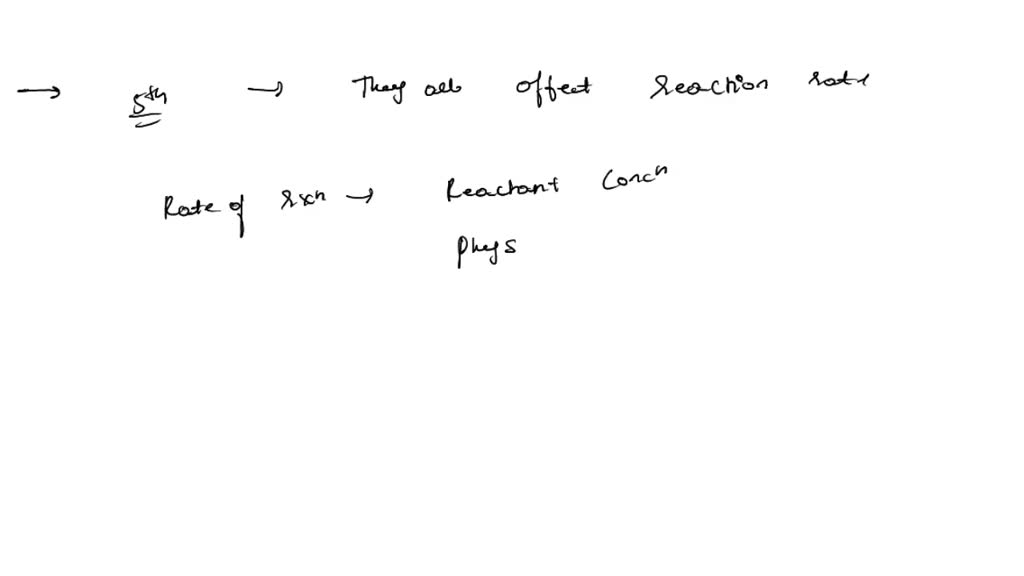 → 5th → They all affect reaction rate
Rate of rxn → Reactant concn
phys